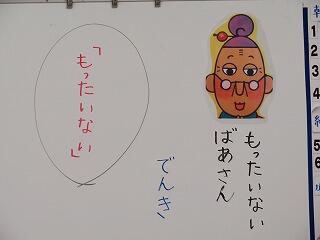 「もったいない」
もったいない
ばあさん
でんき
朝
1
2
3
4
給
5
6